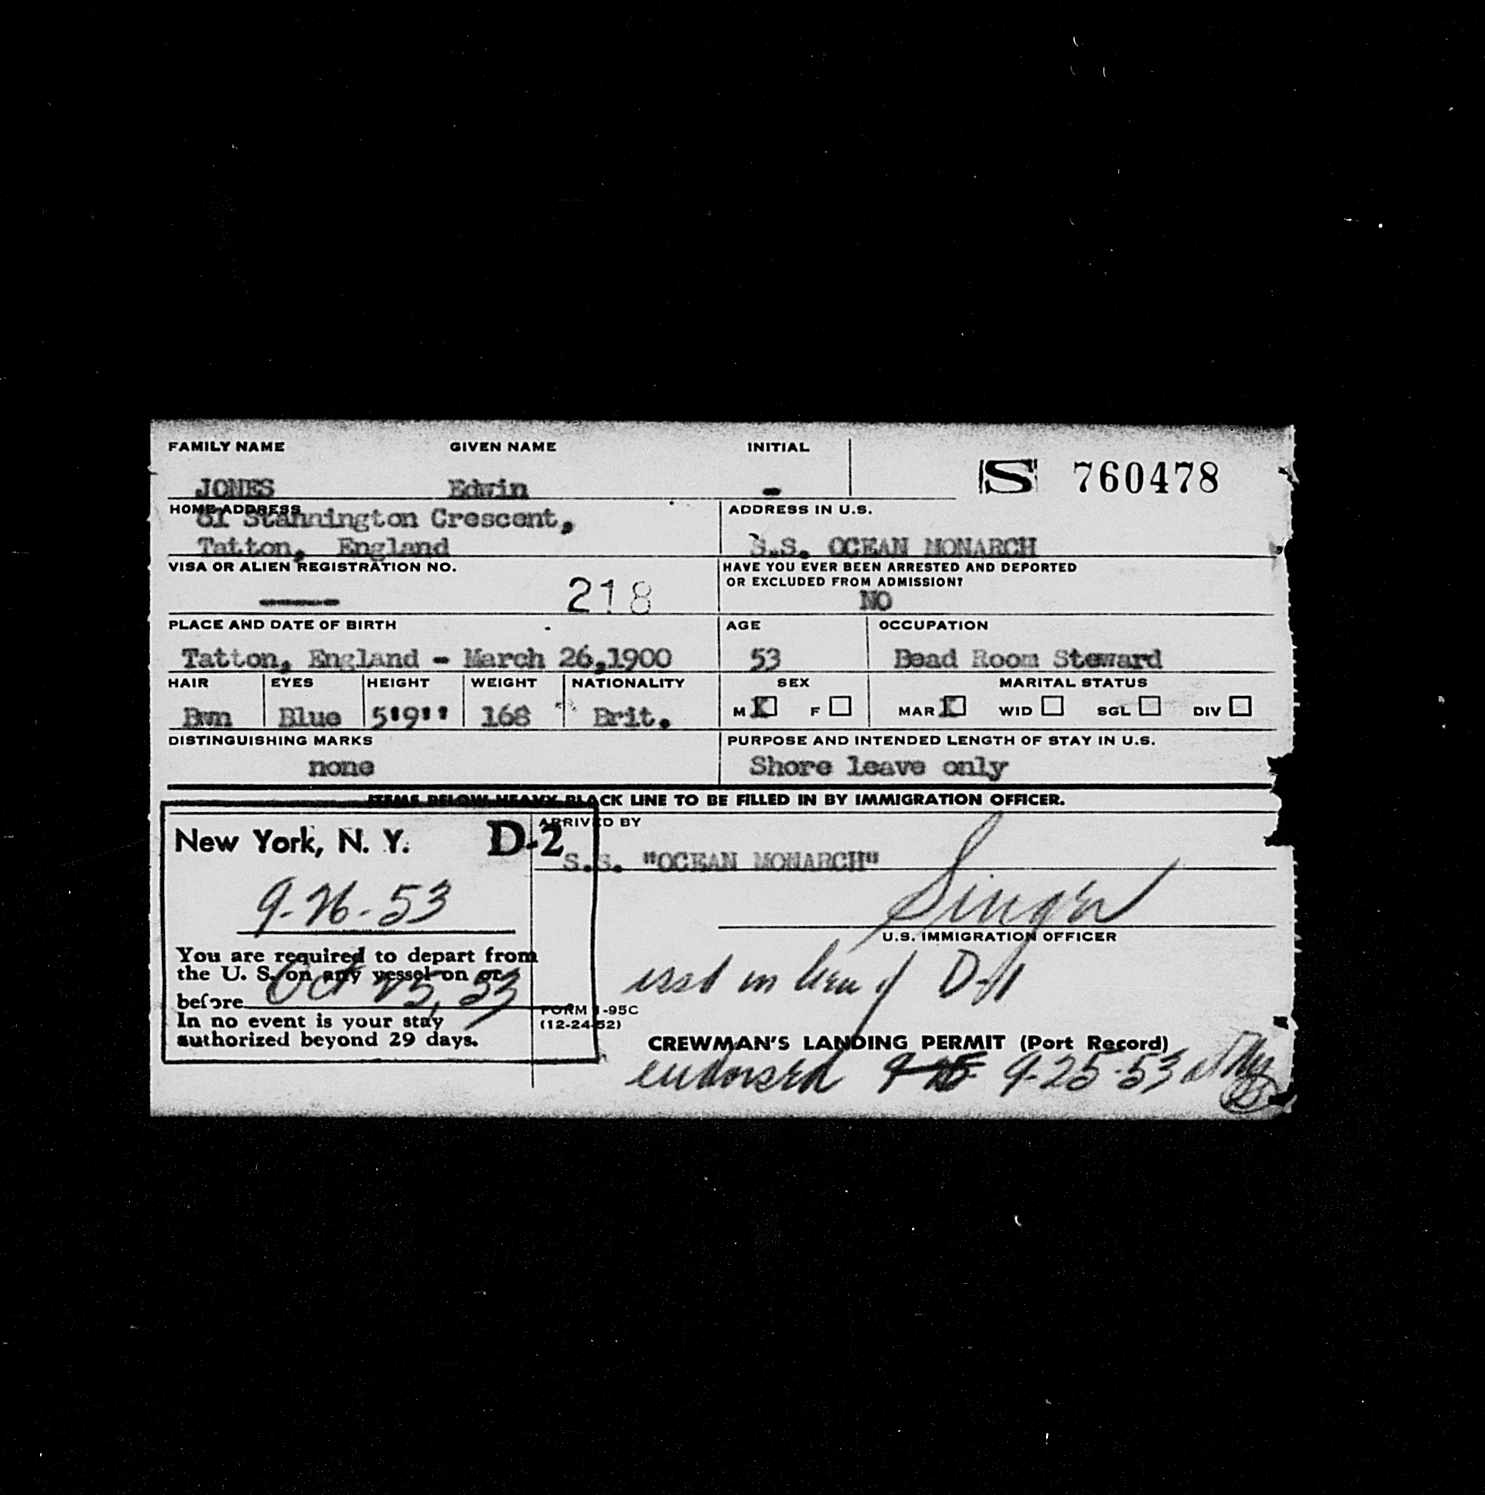 FAMILY NAME GIVEN NAME INITIAL
JONES Edwin - S 760478
HOME ADDRESS ADDRESS IN U.S.
61 Stannington Crescent,
Tatton, England S.S. OCEAN MONARCH
VISA OR ALIEN REGISTRATION NO. HAVE YOU EVER BEEN ARRESTED AND DEPORTED
OR EXCLUDED FROM ADMISSION?
218 NO
PLACE AND DATE OF BIRTH AGE OCCUPATION
Tatton, England - March 26,1900 53 Bead Room Steward
HAIR EYES HEIGHT WEIGHT NATIONALITY SEX MARITAL STATUS
Bwn Blue 5'9'' 168 Brit. M X F MAR X WID SGL DIV
DISTINGUISHING MARKS PURPOSE AND INTENDED LENGTH OF STAY IN U.S.
none Shore leave only
ITEMS BELOW HEAVY BLACK LINE TO BE FILLED IN BY IMMIGRATION OFFICER.
ARRIVED BY
New York, N. Y. D-2
S.S. "OCEAN MONARCH"
9-26-53 Singer
U.S. IMMIGRATION OFFICER
You are required to depart from
the U. S. on any vessel on or
before Oct 25, 53
issd in lieu of D-1
FORM I-95C
(12-24-52)
In no event is your stay
authorized beyond 29 days.
CREWMAN'S LANDING PERMIT (Port Record)
endorsed 9-25-53